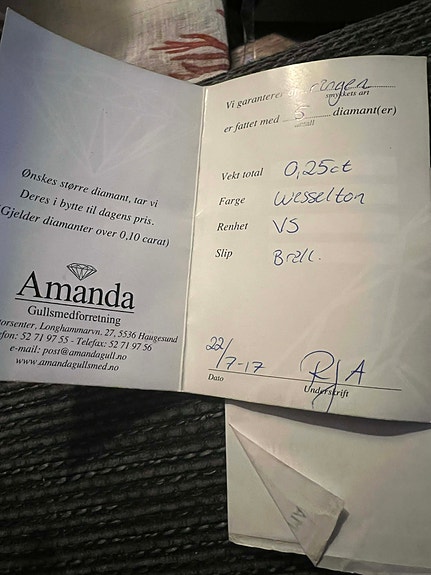 Ønskes større diamant, tar vi
Deres i bytte til dagens pris.
(Gjelder diamanter over 0,10 carat)
Amanda
Gullsmedforretning
torsenter, Longhammarvn. 27, 5536 Haugesund
efon: 52 71 97 55 - Telefax: 52 71 97 56
e-mail: post@amandagull.no
www.amandagullsmed.no
Vi garanterer ringen
smykkets art
er fattet med 5 diamant(er)
antall
Vekt total 0,25ct
Farge Wesselton
Renhet VS
Slip Brill.
22/7-17 RJA
Dato Underskrift